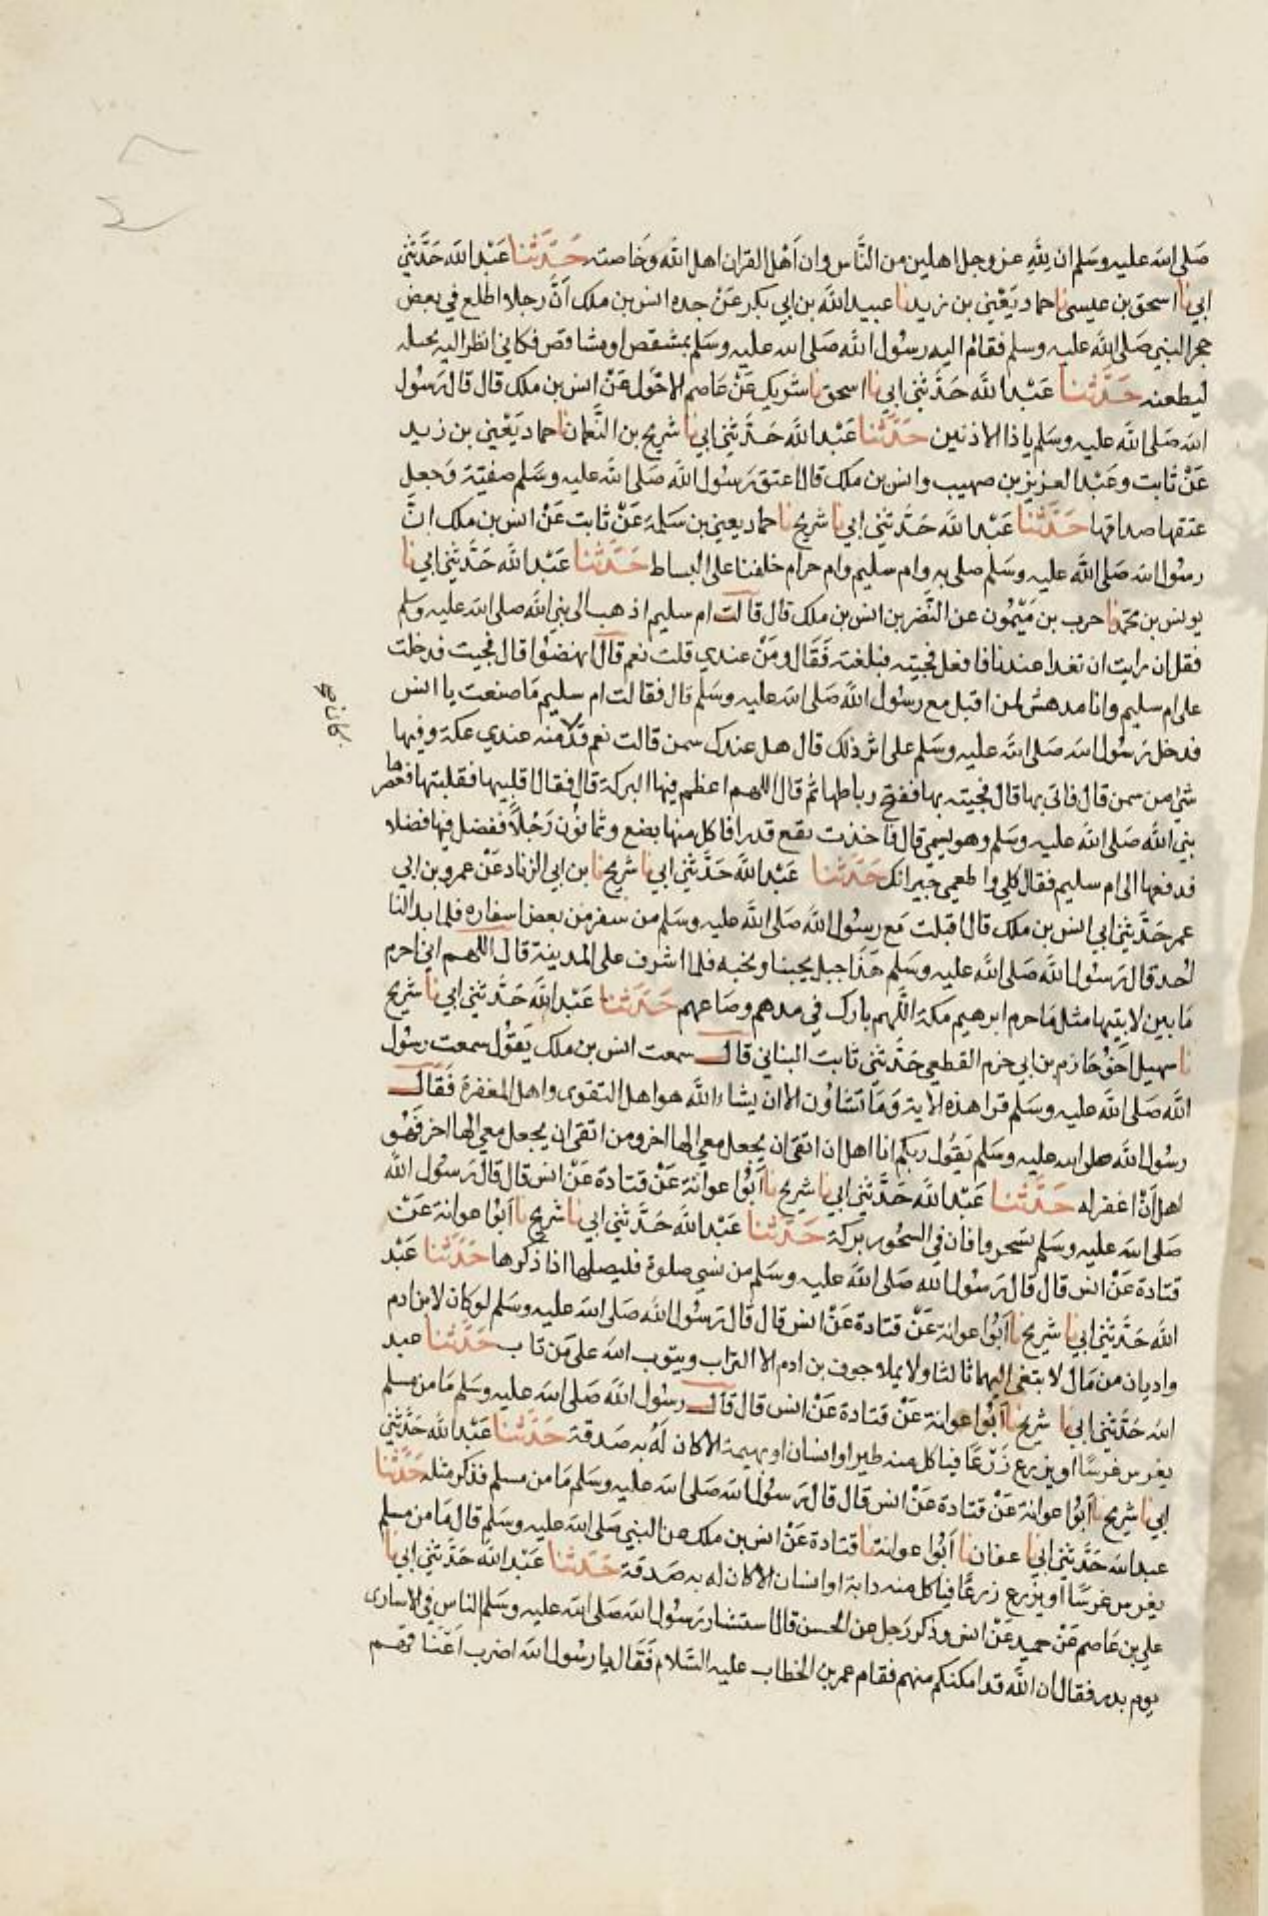 صَلى الله عليه وسَلم ان لِلّهِ عز وجل اهلين من النَّاس وان اَهْل القران اهل الله وَخَاصته حَدَّثنا عَبْد الله حَدَّثني
ابي نا اسحق بن عيسى نا حماد يَعْني بن زيد نا عبيد الله بن ابي بكر عَنْ جده انس بن ملك اَنَّ رجلا اطلع في بعض
حجر النبي صَلى الله عليه وسلم فقام اليه رسُول الله صَلى الله عليه وسَلم بمشقص او مشاقص فكاني انظر اليه يختله
ليطعنه حَدَّثنا عَبْد الله حَدَّثني ابي نا اسحق نا شريك عَنْ عَاصم الاحْول عَنْ انس بن ملك قال قال رَسُول
الله صَلى الله عليه وسَلم يا ذا الاذنين حَدَّثنا عَبْد الله حَدَّثني ابي نا شريح بن النُّعمان نا حماد يَعْني بن زيد
عَنْ ثابت وعَبْد العزيز بن صهيب وانس بن ملك قال اعتق رَسُول الله صَلى الله عليه وسَلم صفيَّة وَجعل
عتقها صداقها حَدَّثنا عَبْد الله حَدَّثني ابي نا شريح نا حماد يعني بن سَلمة عَنْ ثابت عَنْ انس بن ملك انَّ
رسُول الله صَلى الله عليه وسَلم صلى به وام سليم وام حرام خلفنا على البساط حَدَّثنا عَبْد الله حَدَّثني ابي نا
يونس بن محمد نا حرب بن مَيْمُون عن النَّضر بن انس بن ملك قال قالت ام سليم اذهب الى نبي الله صلى الله عليه وسلم
فقل ان رايت ان تغدا عندنا فافعل فجيته فبلغته فَقَال ومَنْ عندي قلت نعم قال انهضوا قال فجيت فدخلت
على ام سليم وانا مدهش لمن اقبل مع رسول الله صَلى الله عليه وسَلم قال فقالت ام سليم مَا صنعت يا انس
فدخل رَسُول الله صَلى الله عليه وسَلم على اثر ذلك قال هل عندك سمن قالت نعم قد كان منه عندي عكة وفيها
شي من سمن قال فاتي بها قال فجيته بها ففتح رباطها ثم قال اللهم اعظم فيها البركة قال فقال اقلبيها فقلبتها فعصرها
نبي الله صَلى الله عليه وسَلم وهو يسمي قال فاخذت بقع قدر افاكل منها بضع وثمانُون رَجُلاً ففضل فيها فضلا
فدفعها الى ام سليم فقال كلي واطعمي جيرانك حَدَّثنا عَبْد الله حَدَّثني ابي نا شريح نا بن ابي الزناد عَنْ عمرو بن ابي
عمر حَدَّثني ابي انس بن ملك قال اقبلت مَع رسُول الله صَلى الله عليه وسَلم من سفر من بعض اسفاره فلما بدا لنا
احُد قال رَسُول الله صَلى الله عليه وسَلم هَذَا جبل يحبنا ونحبه فلما اشرف على المدينة قال اللهم اني احرم
مَا بين لابتيها مثل مَا حرم ابرهيم مكة اللّهم بارك في مدهم وصَاعهم حَدَّثنا عَبْد الله حَدَّثني ابي نا شريح
نا سهيل اخُو حَازم بن ابي حزم القطعي حَدَّثني ثابت البناني قال سمعت انس بن ملك يَقوُل سمعت رسُول
الله صَلى الله عليه وسَلم قرا هذه الاية وَمَا تشاوُن الا ان يشاء الله هو اهل التقوى واهل المغفرة فَقَال
رسُول الله صلى الله عليه وسَلم يَقُول ربكم انا اهل ان اتقى ان يجعل معي الها اخر ومن اتقى ان يجعل معي الها اخر فَهُو
اهل اَنْ اغفر له حَدَّثنا عَبْد الله حَدَّثني ابي نا شريح نا اَبُوا عوانة عَنْ قتادة عَنْ انس قال قال رَسُول الله
صَلى الله عليه وسَلم تسَحروا فان في السَّحُور بركة حَدَّثنا عَبْد الله حَدَّثني ابي نا شريح نا اَبُوا عوانة عَنْ
قتادة عَنْ انس قال قال رَسُول الله صَلى الله عليه وسَلم من نسي صلوة فليصلها اذا ذكرها حَدَّثنا عَبْد
الله حَدَّثني ابي نا شريح نا اَبُوا عوانة عَنْ قتادة عَنْ انس قال قال رَسُول الله صَلى الله عليه وسَلم لو كان لابن ادم
واديان من مَال لابتغى اليهما ثالثا ولا يملا جوف بن ادم الا التراب ويتوب الله على مَن تاب حَدَّثنا عبد
الله حَدَّثني ابي نا شريح نا اَبُوا عوانة عَنْ قتادة عَنْ انس قال قال رسُول الله صَلى الله عليه وسَلم مَا من مسلم
يغرس غرسًا او يزرع زَرْعًا فياكل منه طير او انسان او بهيمة الا كان لَهُ به صَدقة حَدَّثنا عَبْد الله حَدَّثني
ابي نا شريح نا اَبُوا عوانة عَنْ قتادة عَنْ انس قال قال رَسُول الله صَلى الله عليه وسَلم مَا من مسلم فذكر مثله حَدَّثنا
عبد الله حَدَّثني ابي نا عفان نا اَبُوا عوانة نا قتادة عَنْ انس بن ملك عن النبي صَلى الله عليه وسَلم قال مَا من مسلم
يغرس غرسًا او يزرع زرعًا فياكل منه دابة او انسان الا كان له به صَدقة حَدَّثنا عَبْد الله حَدَّثني ابي نا
علي بن عَاصم عَنْ حميد عَنْ انس وذكر رَجل عن الحسن قال استشار رَسُول الله صَلى الله عليه وسَلم الناس في الاسارى
يوم بدر فقال ان الله قد امكنكم منهم فقام عمر بن الخطاب عليه السَّلام فَقَال يا رسُول الله اضرب اعْنَاقهم